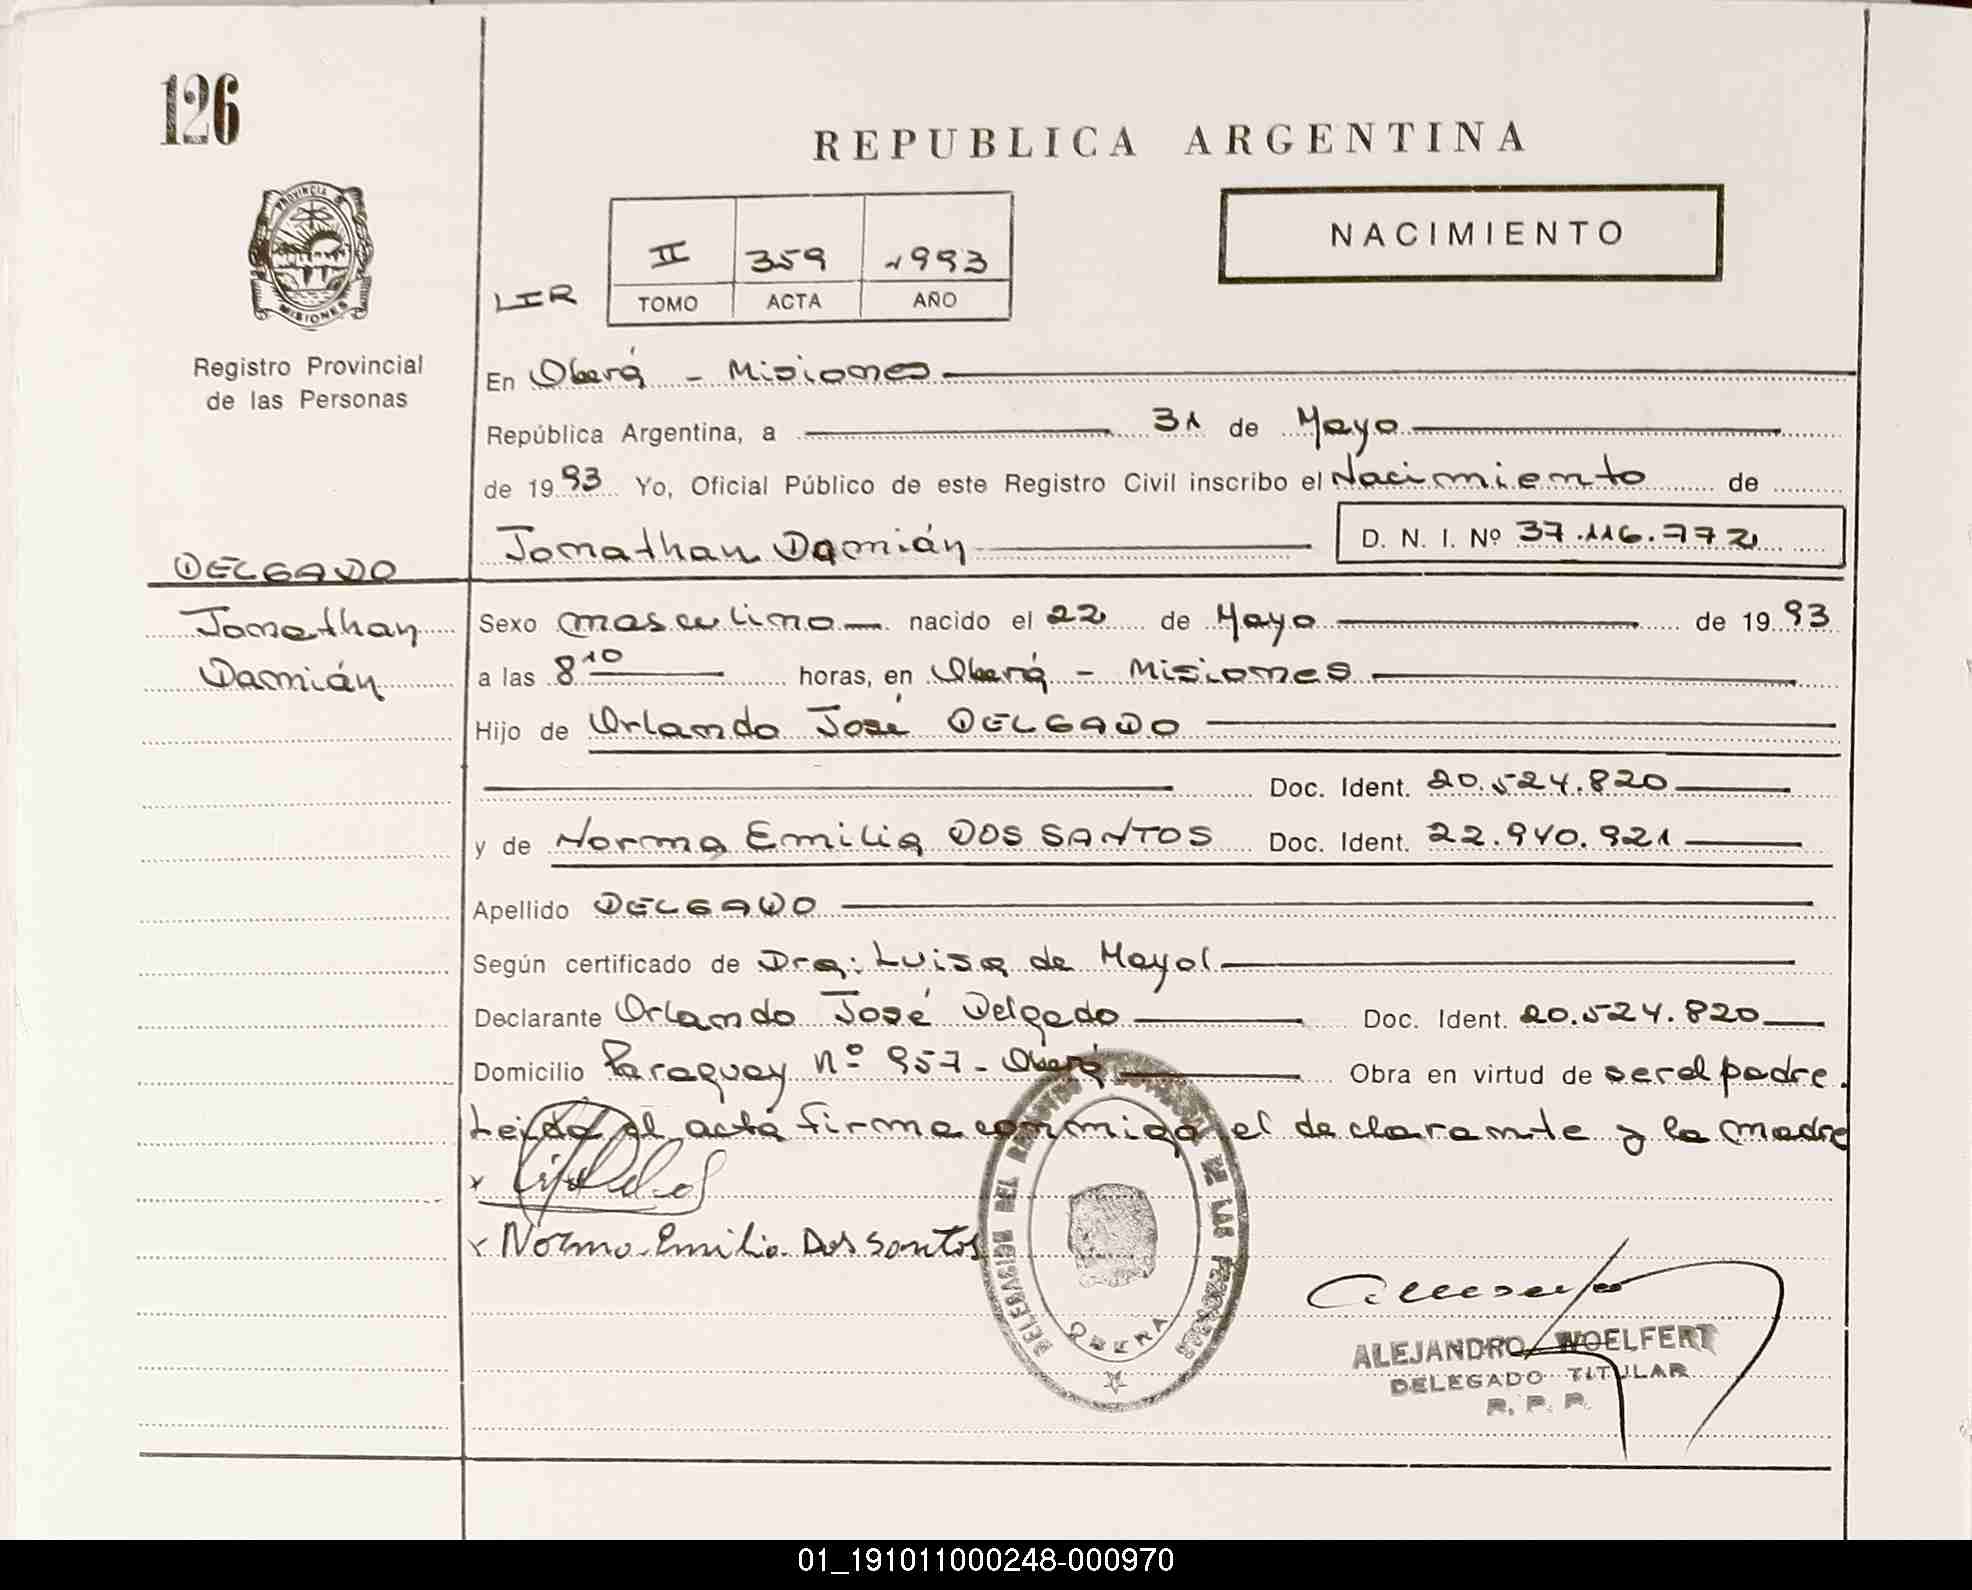 126
REPUBLICA ARGENTINA
PROVINCIA
MISIONES
NACIMIENTO
II 359 1993
LIR
TOMO ACTA AÑO
Registro Provincial
de las Personas
En Oberá - Misiones
República Argentina, a 31 de Mayo
de 1993 Yo, Oficial Público de este Registro Civil inscribo el Nacimiento de
Jonathan Damián D. N. I. Nº 37.116.772
DELGADO
Jonathan
Damián
Sexo masculino nacido el 22 de Mayo de 1993
a las 8 10 horas, en Oberá - Misiones
Hijo de Orlando José DELGADO
Doc. Ident. 20.524.820
y de Norma Emilia DOS SANTOS Doc. Ident. 22.940.921
Apellido DELGADO
Según certificado de Dra: Luisa de Mayol
Declarante Orlando José Delgado Doc. Ident. 20.524.820
Domicilio Paraguay Nº 957 - Oberá Obra en virtud de ser el padre.
Leída el acta firma conmigo el declarante y la madre
x
x Norma Emilia Dos santos
DELEGACION DEL REGISTRO PROVINCIAL DE LAS PERSONAS
OBERA
ALEJANDRO WOELFERT
DELEGADO TITULAR
R. P. P.
01_191011000248-000970